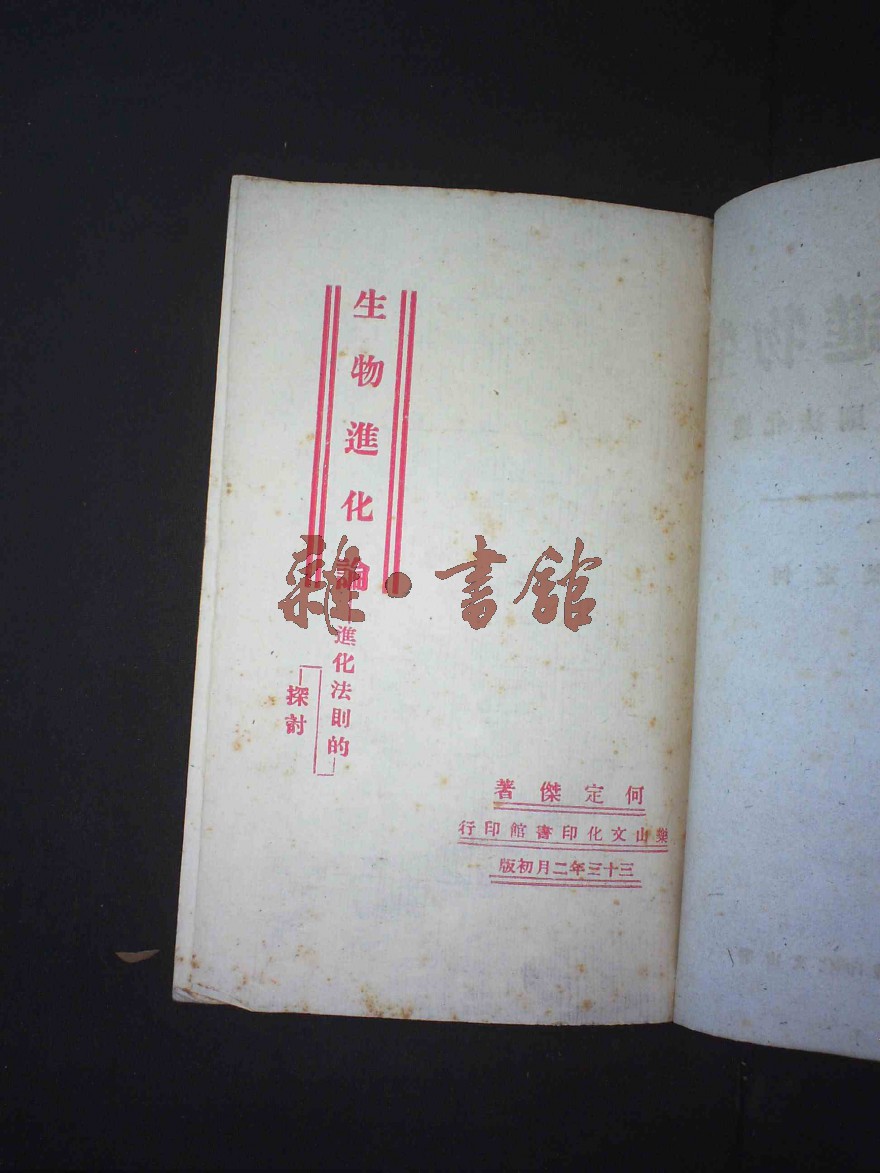 生物進化論
進化法則的
探討
何定傑著
樂山文化印書館印行
三十三年二月初版
雜·書館